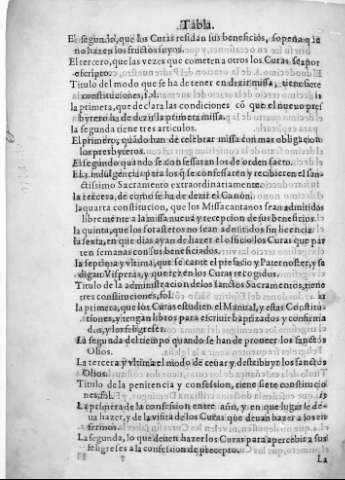 Tabla.
El segundo, que los Curas residan sus beneficios, so pena que
no hazen los fructos suyos.
El tercero, que las vezes que cometen a otros los Curas sea por
escripto.
Titulo del modo que se ha de tener en dezir missa, tiene siete
constituciones, fol.
la primera, que declara las condiciones cõ que el nuevo pres
bytero ha de dezir la primera missa.
la segunda tiene tres articulos.
El primero, quãdo han de celebrar missa con mas obligacion
los presbyteros.
El segundo quando se confessaran los de orden sacro.
El indulgencias para los q̃ se confessaren y recibieren el san-
ctissimo Sacramento extraordinariamente.
la tercera, de como se ha de dezir el Canõn.
la quarta constitucion, que los Missacantanos sean admitidos
libremente a la missa nueva y recepcion de sus beneficios.
la quinta, que los forasteros no sean admitidos sin licencia.
la sexta, en que dias ayan de hazer el officio los Curas que par
ten semanas con sus beneficiados.
la septima y vltima, que se cante el prefacio y Paternoster, y se
digan Visperas, y que recen los Curas recogidos.
Titulo de la administracion de los sanctos Sacramentos, tiene
tres constituciones, fol.
la primera, que los Curas estudien el Manual, y estas Constitu
ciones, y tengan libros para escriuir baptizados y confirma
dos, y los feligreses.
La segunda del tiempo quando se han de proueer los sanctos
Olios.
La tercera y vltima el modo de ceñar y destribuyr los sanctos
Olios.
Titulo de la penitencia y confession, tiene siete constitucio
nes, fol.
La primera de la confession entre año, y en que lugar se de-
ua hazer, y de la visita de los Curas que deuan hazer a los en
fermos.
La segunda, lo que deuen hazer los Curas para apercebir a sus
feligreses a la confession de precepto.
La